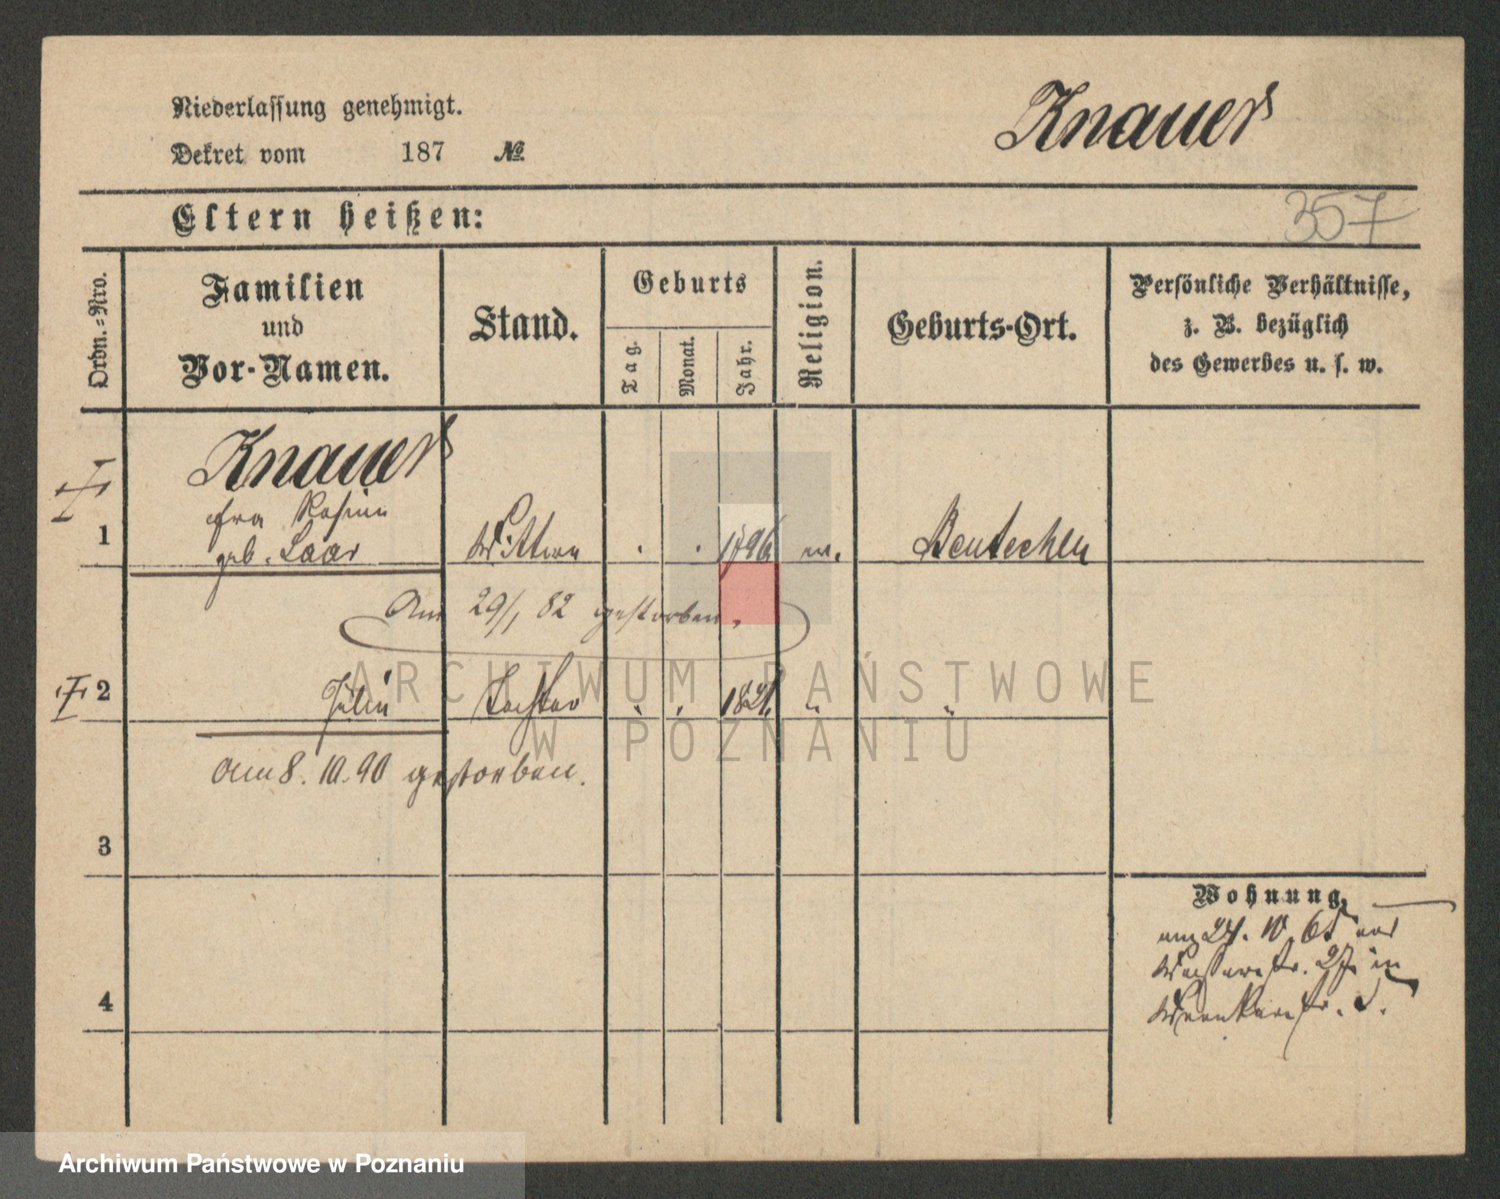 Niederlassung genehmigt.
Dekret vom 187 №
Knauer
Eltern heißen:
357
Ordn.-Nro.
Familien
und
Vor-Namen.
Stand.
Geburts
Tag.
Monat.
Jahr.
Religion.
Geburts-Ort.
Persönliche Verhältnisse,
z. B. bezüglich
des Gewerbes u. s. w.
Knauer
1
fra Rosine
geb. Laar
Wittwe
1796
ev.
Bentschen
Am 29/1 82 gestorben.
2
Julie
Tochter
1821.
"
"
am 8. 10. 90 gestorben.
3
4
Wohnung.
24. 10. 65 von
Wasserstr. 27 in
5.
ARCHIWUM PAŃSTWOWE
W POZNANIU
Archiwum Państwowe w Poznaniu